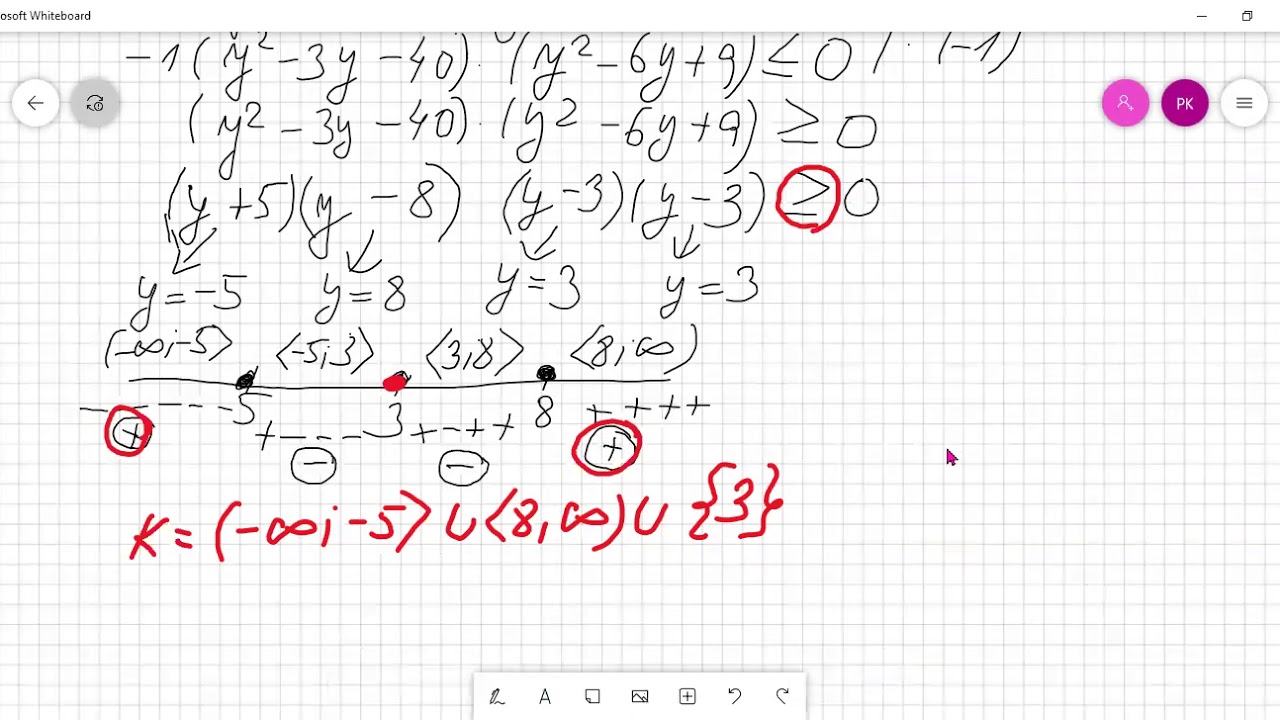 osoft Whiteboard
-1(y² - 3y - 40) · (y² - 6y + 9) ≤ 0 / · (-1)
(y² - 3y - 40) · (y² - 6y + 9) ≥ 0
(y + 5)(y - 8) (y - 3)(y - 3) ≥ 0
PK
y = -5 y = 8 y = 3 y = 3
(-∞; -5⟩ ⟨-5; 3⟩ ⟨3, 8⟩ ⟨8; ∞)
- - - - -5 + - - - 3 + - + + 8 + + + +
+ - - +
K = (-∞; -5⟩ ∪ ⟨8, ∞) ∪ {3}
A